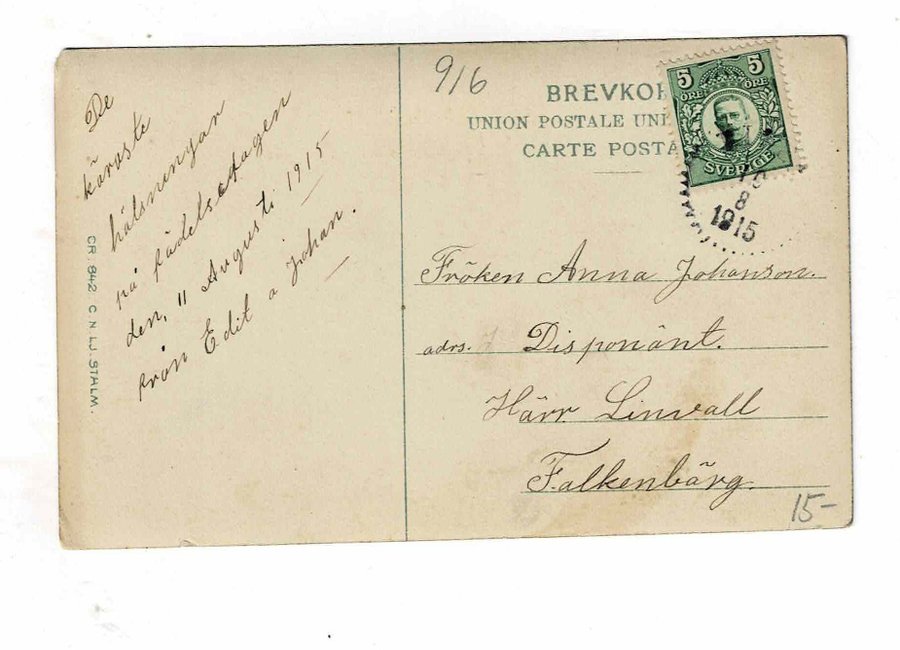 De
käraste
hälsningar
på födelsedagen
den, 11 Augusti 1915
från Edit o Johan.
CR. 842 C.N.LJ. STHLM.
9/6
BREVKOR
UNION POSTALE UNI
CARTE POSTA
5 5
ÖRE ÖRE
SVERIGE
8
1915
Fröken Anna Johanson.
adrs. Disponänt.
Härr Linvall
Falkenbärg.
15-